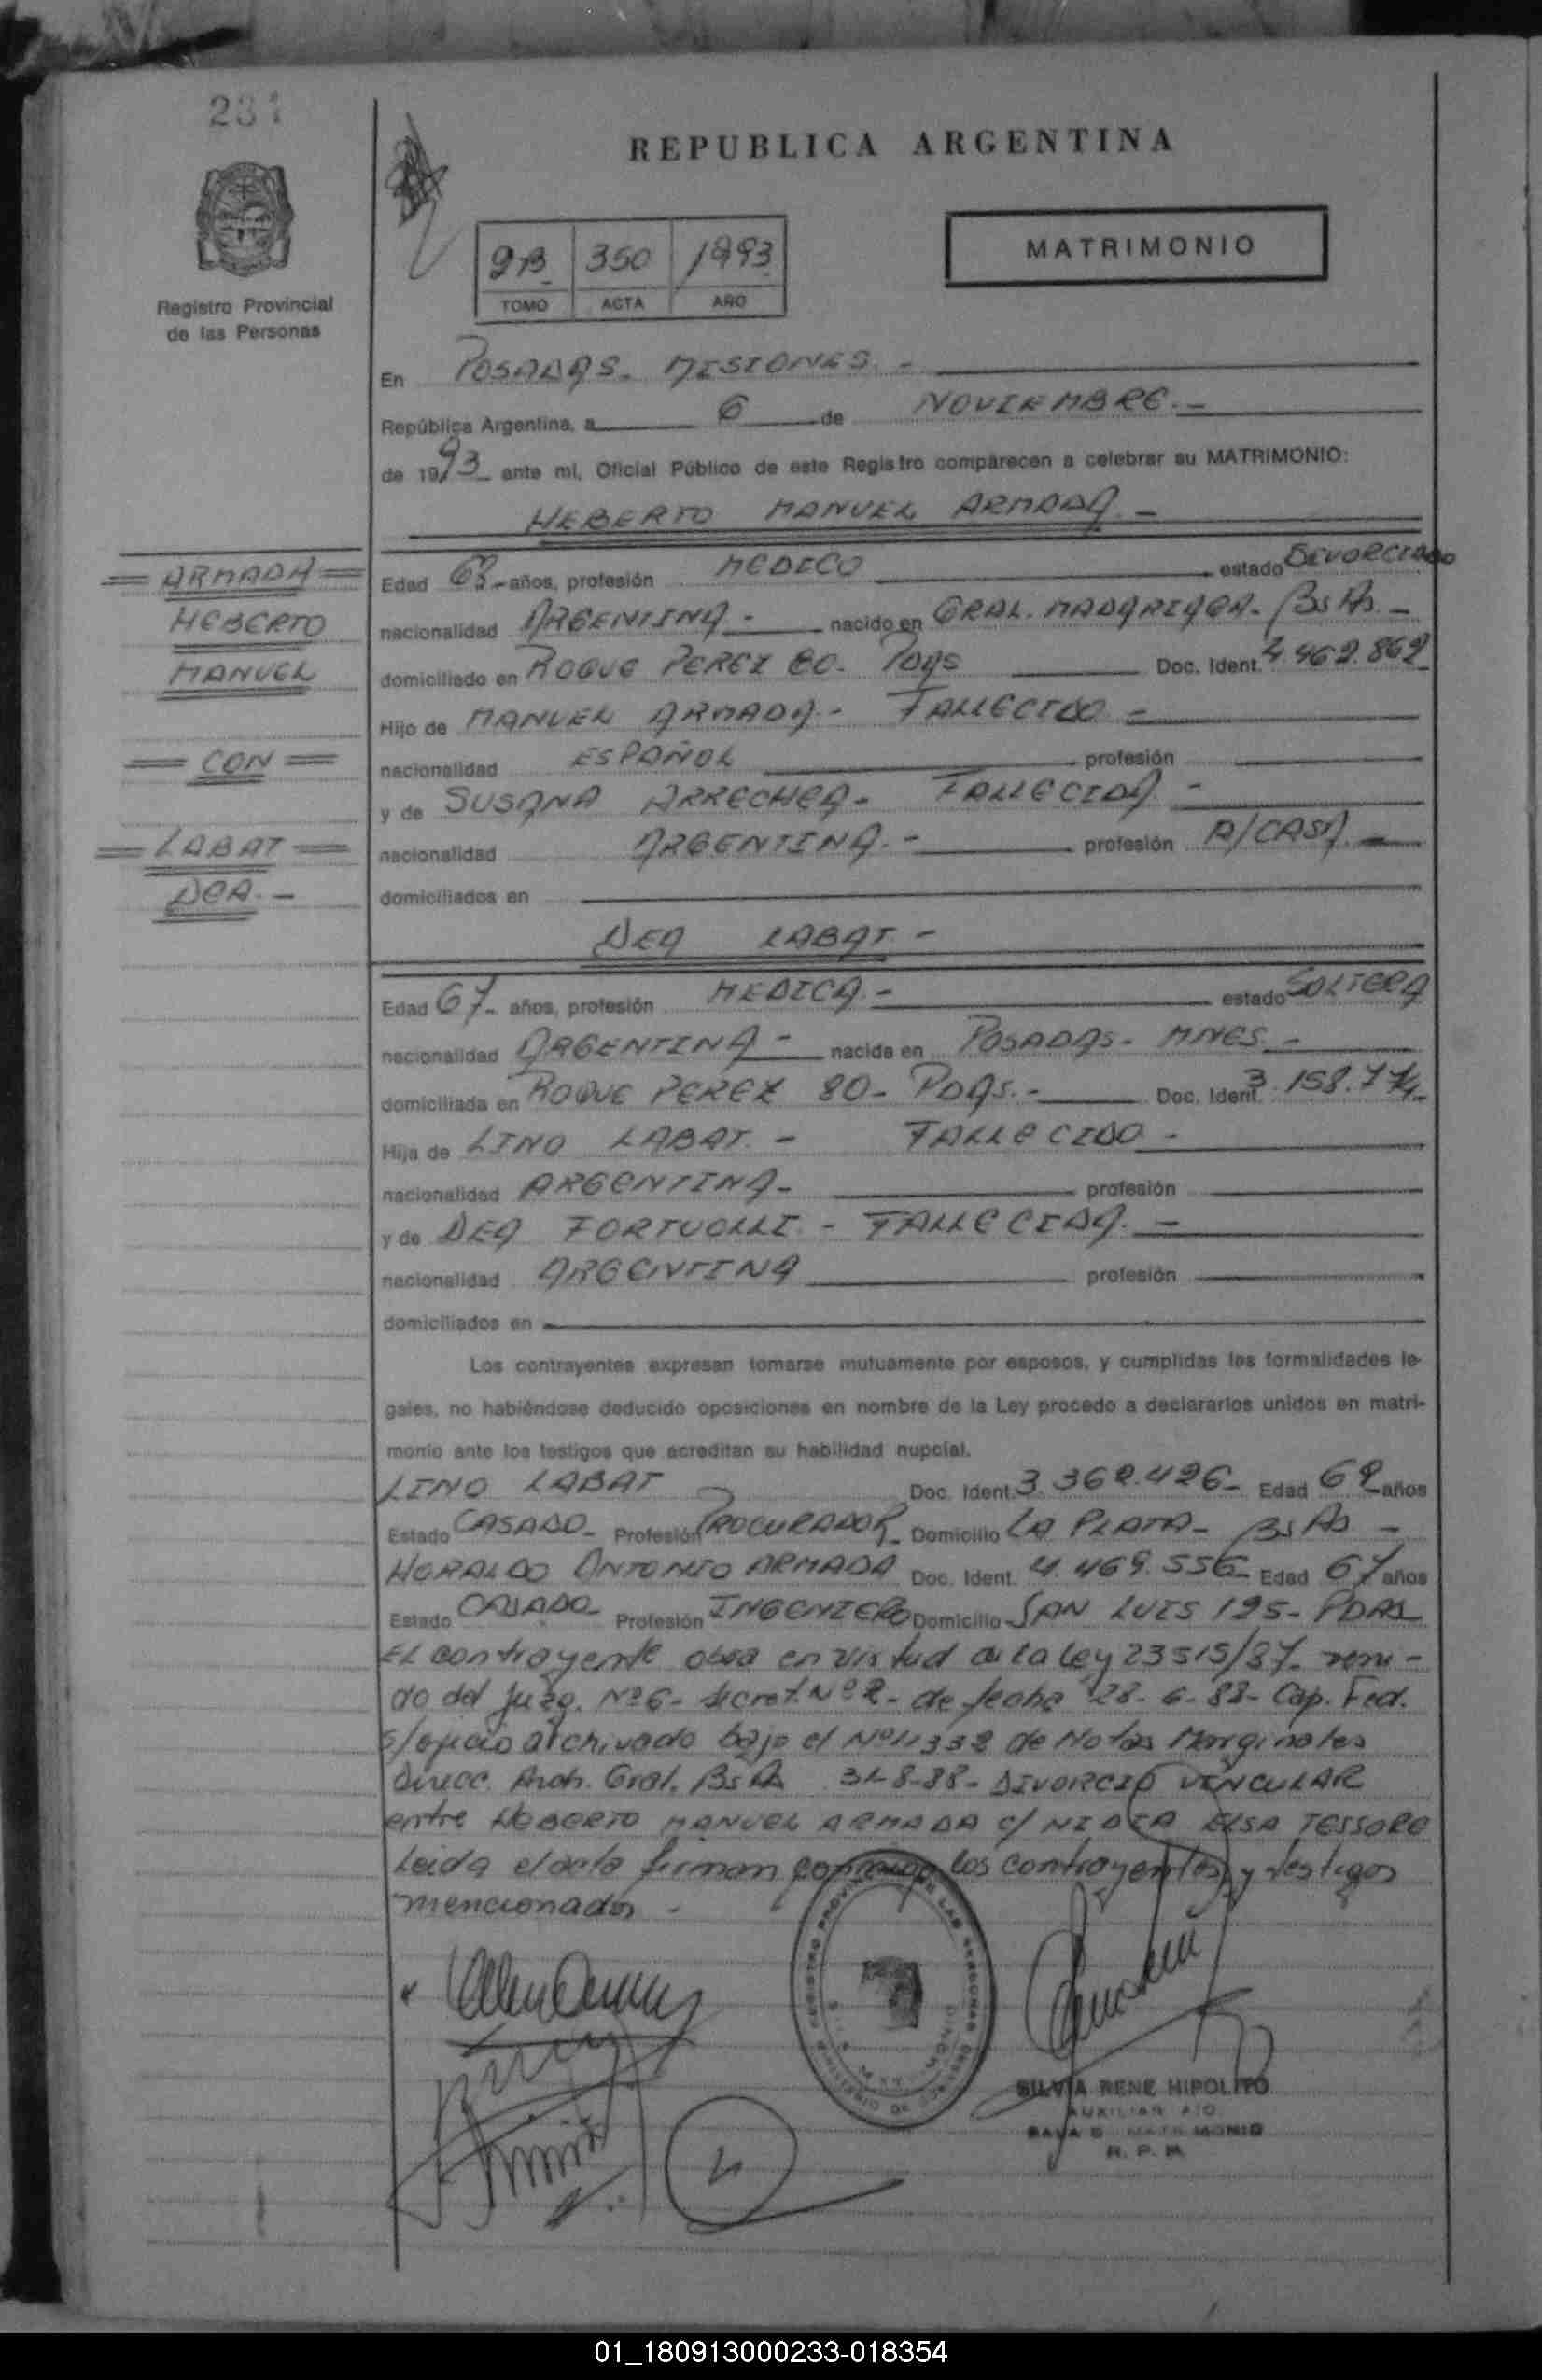 231
REPUBLICA ARGENTINA
MATRIMONIO
350 1993
TOMO ACTA AÑO
Registro Provincial
de las Personas
En POSADAS. MISIONES. -
República Argentina, a 6 de NOVIEMBRE. -
de 1993 ante mi, Oficial Público de este Registro comparecen a celebrar su MATRIMONIO:
HEBERTO MANUEL ARMADA. -
ARMADA
HEBERTO
MANUEL
CON
LABAT
DEA. -
Edad 68 - años, profesión MEDICO estado DIVORCIADO
nacionalidad ARGENTINA - nacido en GRAL. MADARIAGA - Bs As. -
domiciliado en ROQUE PEREZ 80. PDAS Doc. Ident. 4.462.862
Hijo de MANUEL ARMADA - FALLECIDO -
nacionalidad ESPAÑOL profesión
y de SUSANA ARRECHEA - FALLECIDA -
nacionalidad ARGENTINA. - profesión A/CASA. -
domiciliados en
DEA LABAT -
Edad 67 - años, profesión MEDICA. - estado SOLTERA
nacionalidad ARGENTINA - nacida en POSADAS - MNES. -
domiciliada en ROQUE PEREZ 80 - PDAS. - Doc. Ident. 3.158.774
Hija de LINO LABAT. - FALLECIDO -
nacionalidad ARGENTINA - profesión
y de DEA FORTUOLLI - FALLECIDA. -
nacionalidad ARGENTINA profesión
domiciliados en
Los contrayentes expresan tomarse mutuamente por esposos, y cumplidas las formalidades le-
gales, no habiéndose deducido oposiciones en nombre de la Ley procedo a declararlos unidos en matri-
monio ante los testigos que acreditan su habilidad nupcial.
LINO LABAT Doc. Ident. 3.362.426 - Edad 69 años
Estado CASADO - Profesión PROCURADOR - Domicilio LA PLATA - Bs As -
HERALDO ANTONIO ARMADA Doc. Ident. 4.469.556 - Edad 67 años
Estado CASADO - Profesión INGENIERO Domicilio SAN LUIS 195 - PDAS
El contrayente obra en virtud de la Ley 23515/87 -
do del Juzg. Nº 6 - Secret. Nº 2 - de fecha 28-6-88 - Cap. Fed.
s/oficio archivado bajo el Nº 11332 de Notas Marginales
Direcc. Arch. Gral. Bs As 31-8-88 - DIVORCIO VINCULAR
entre HEBERTO MANUEL ARMADA c/ NIDIA ELSA TESSORE
Leida el acta firman conmigo los contrayentes y testigos
mencionados -
SILVIA RENE HIPOLITO
AUXILIAR
SALA MATRIMONIO
R. P. P.
01_180913000233-018354